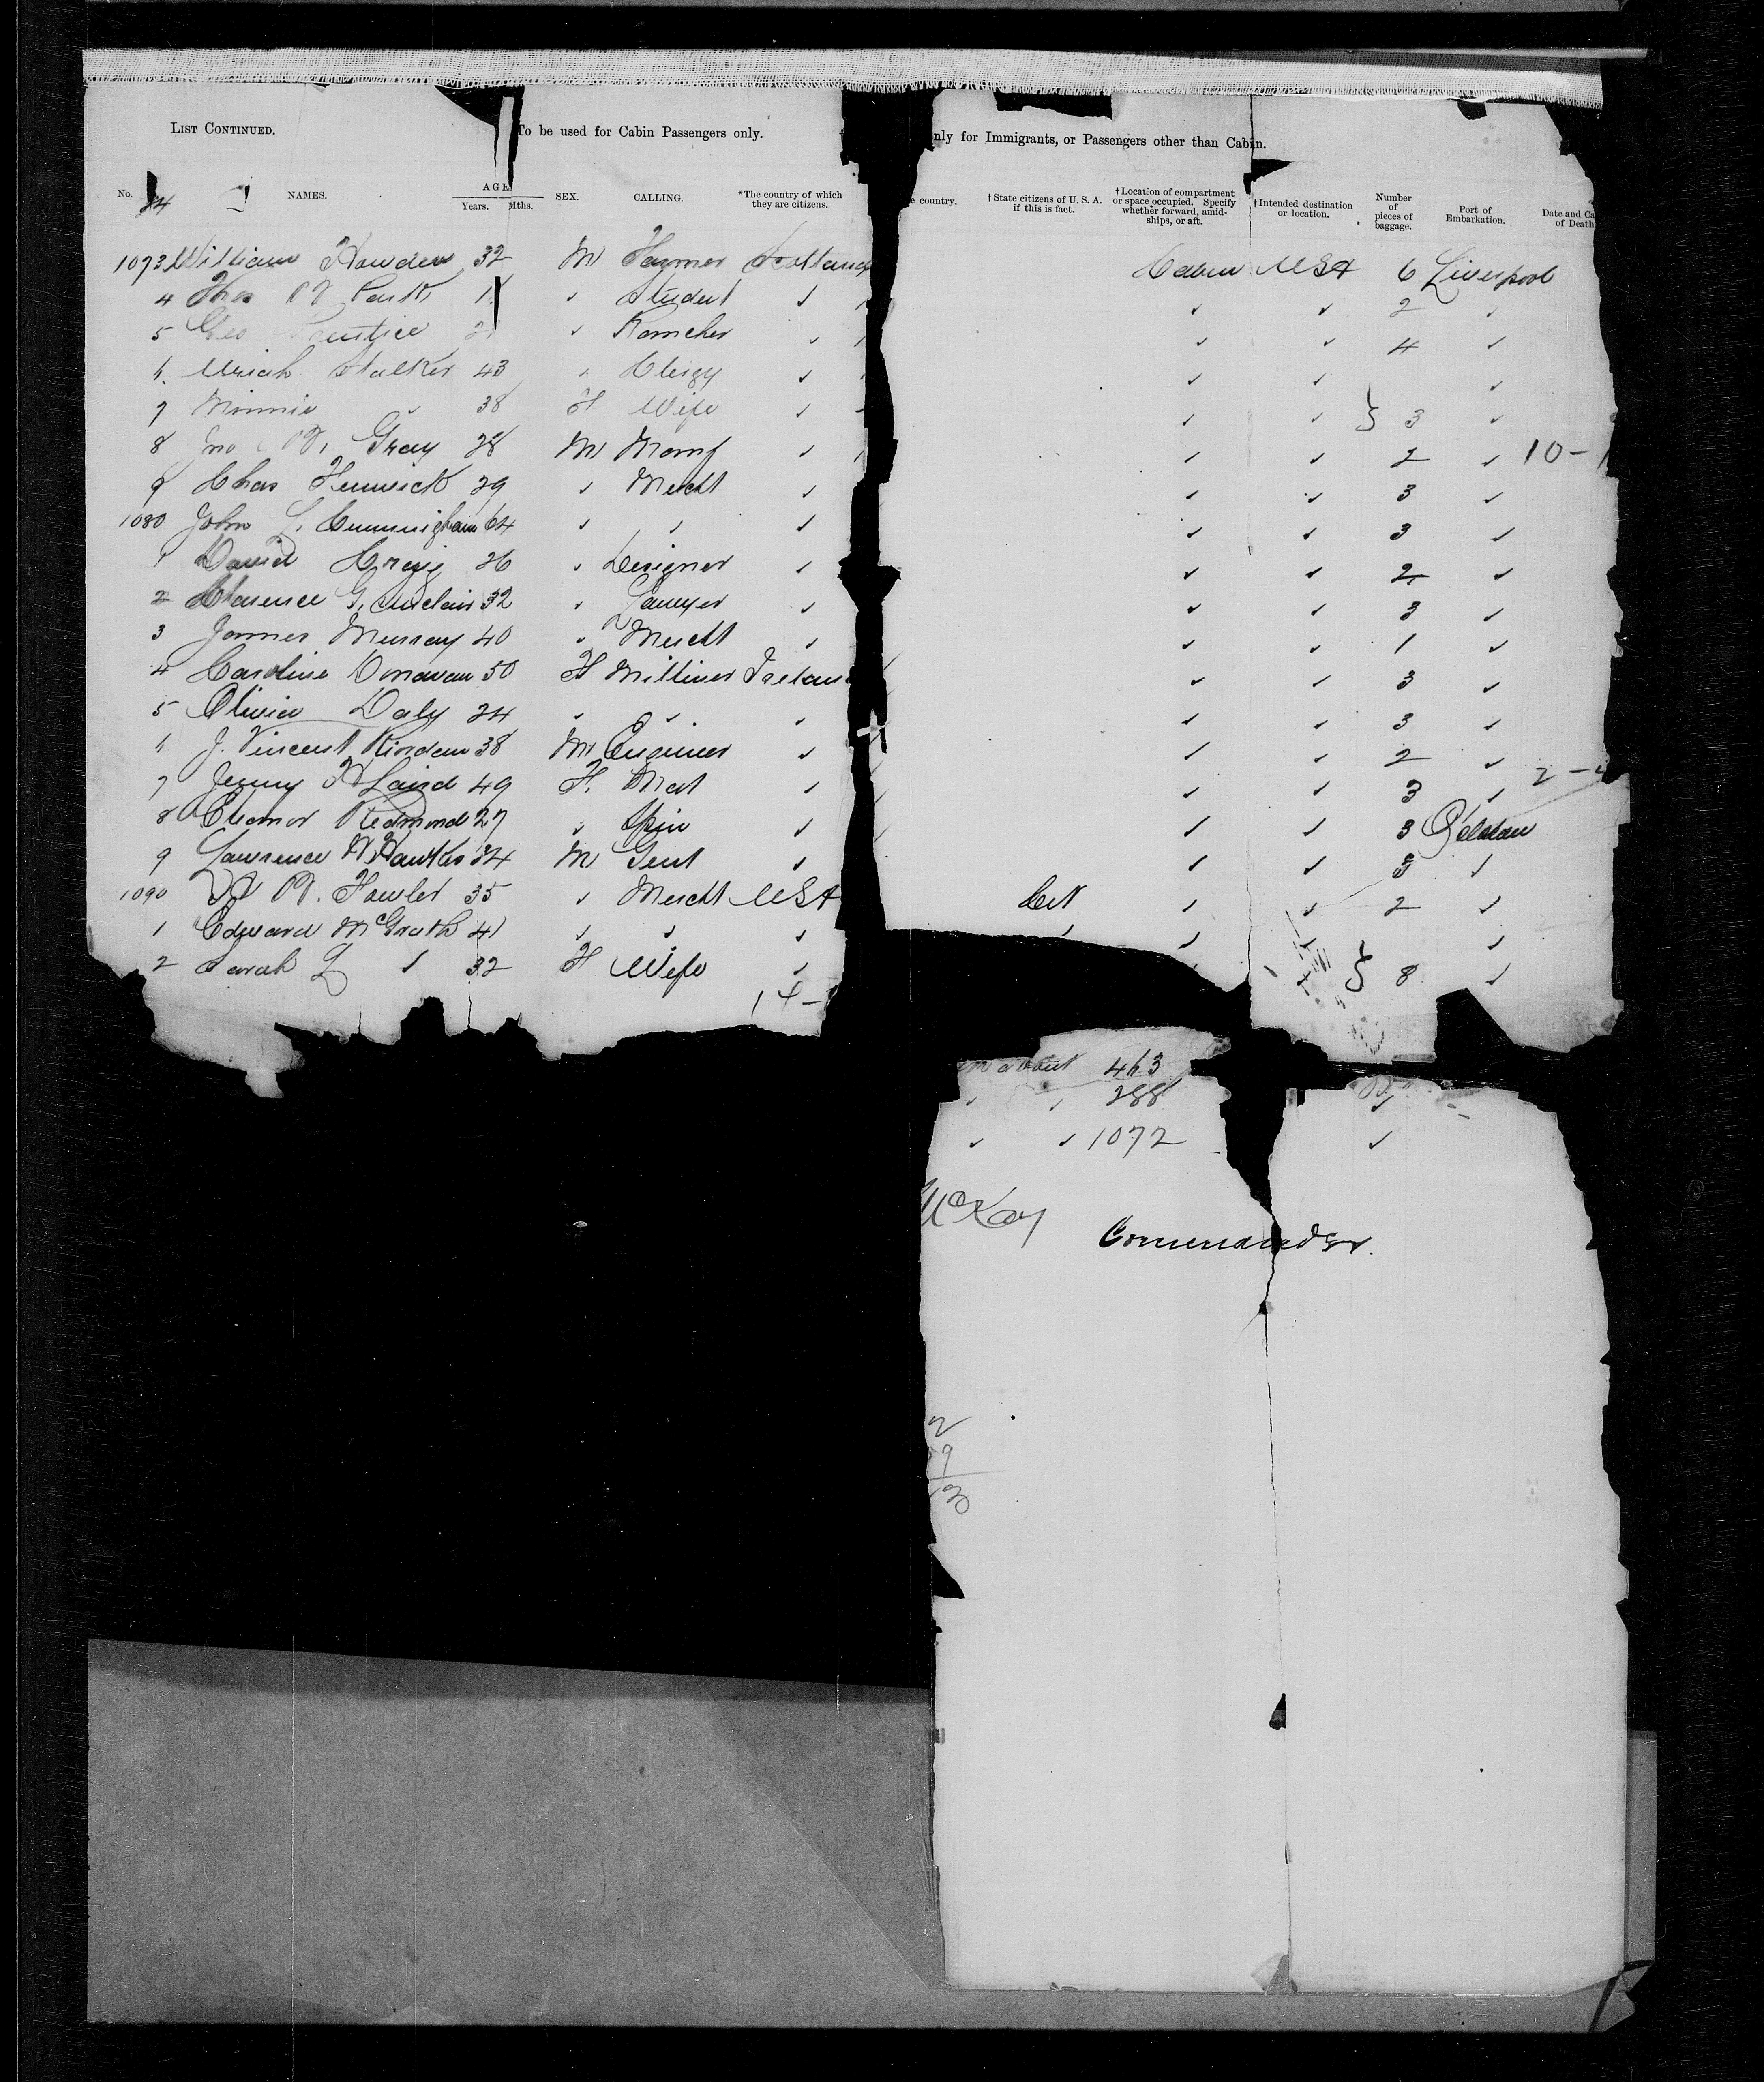 LIST CONTINUED. To be used for Cabin Passengers only. only for Immigrants, or Passengers other than Cabin.
No. NAMES. AGE Years. Mths. SEX. CALLING. *The country of which they are citizens. country. †State citizens of U. S. A. if this is fact. †Location of compartment or space occupied. Specify whether forward, amidships, or aft. †Intended destination or location. Number of pieces of baggage. Port of Embarkation. Date and Ca of Death
24
1073 William Howden 32 M Farmer Scotland Cabin USA 6 Liverpool
4 Thos Park 1 ✓ Student ✓ ✓ ✓ 2 ✓
5 Geo Prentice 2 ✓ Rancher ✓ ✓ ✓ 4 ✓
6 Uriah Stalker 43 ✓ Clergy ✓ ✓ ✓ ✓
7 Minnie ✓ 38 F Wife ✓ ✓ ✓ } 3 ✓
8 Jno Gray 28 M Manf ✓ ✓ ✓ 2 ✓ 10-
9 Chas Fenwick 29 ✓ Mercht ✓ ✓ ✓ 3 ✓
1080 John L. Cunningham 64 ✓ ✓ ✓ ✓ ✓ 3 ✓
1 David Craig 26 ✓ Designer ✓ ✓ ✓ 2 ✓
2 Clarence G. Sinclair 32 ✓ Lawyer ✓ ✓ ✓ 3 ✓
3 James Murray 40 ✓ Mercht ✓ ✓ ✓ 1 ✓
4 Caroline Donavan 50 F Milliner Ireland ✓ ✓ 3 ✓
5 Olivia Daly 24 ✓ ✓ ✓ ✓ ✓ 3 ✓
6 J. Vincent 38 M Engineer ✓ ✓ ✓ 2 ✓
7 Jenny Laird 49 F. Mat ✓ ✓ ✓ 3 ✓ 2-
8 Eleanor Redmond 27 ✓ Spin ✓ ✓ ✓ 3
9 Lawrence Hawkes 34 M Gent ✓ ✓ ✓ 3 ✓
1090 Fowler 35 ✓ Mercht USA ✓ ✓ 2 ✓
1 Edward McGrath 41 ✓ ✓ ✓ ✓ ✓ ✓ ✓
2 Sarah L ✓ 32 F Wife ✓ ✓ } 8 ✓
14-
about 463
✓ ✓ 288 ✓
✓ ✓ 1072 ✓
McKay
Commander.
2
9